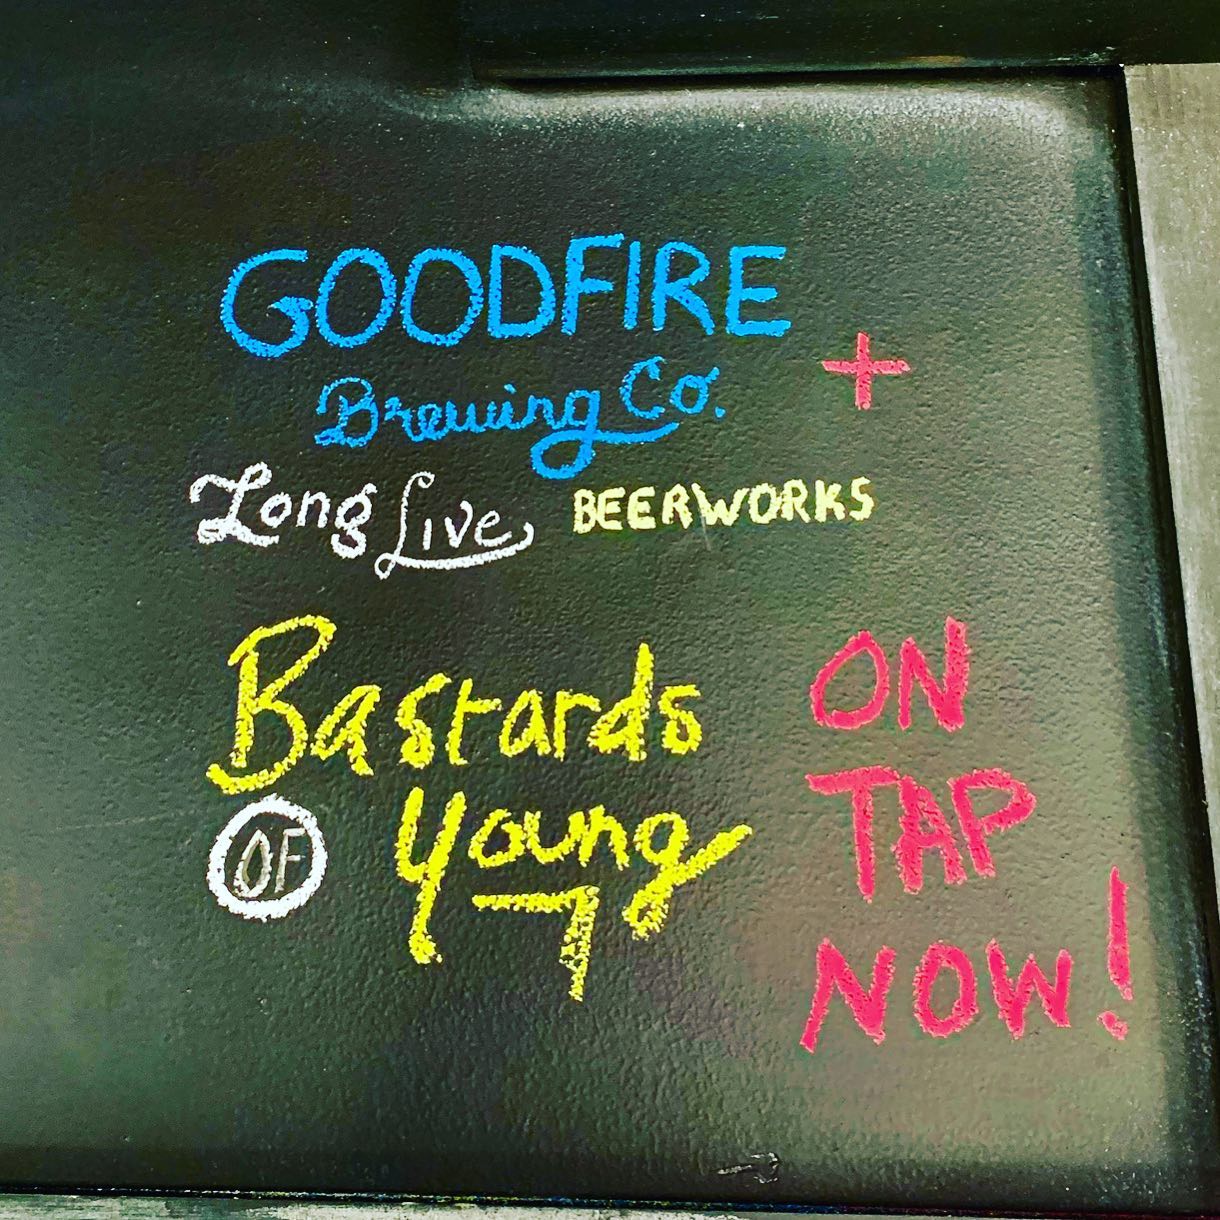 GOODFIRE
Brewing Co. +
Long Live BEERWORKS
Bastards
OF Young
7
ON
TAP
NOW!